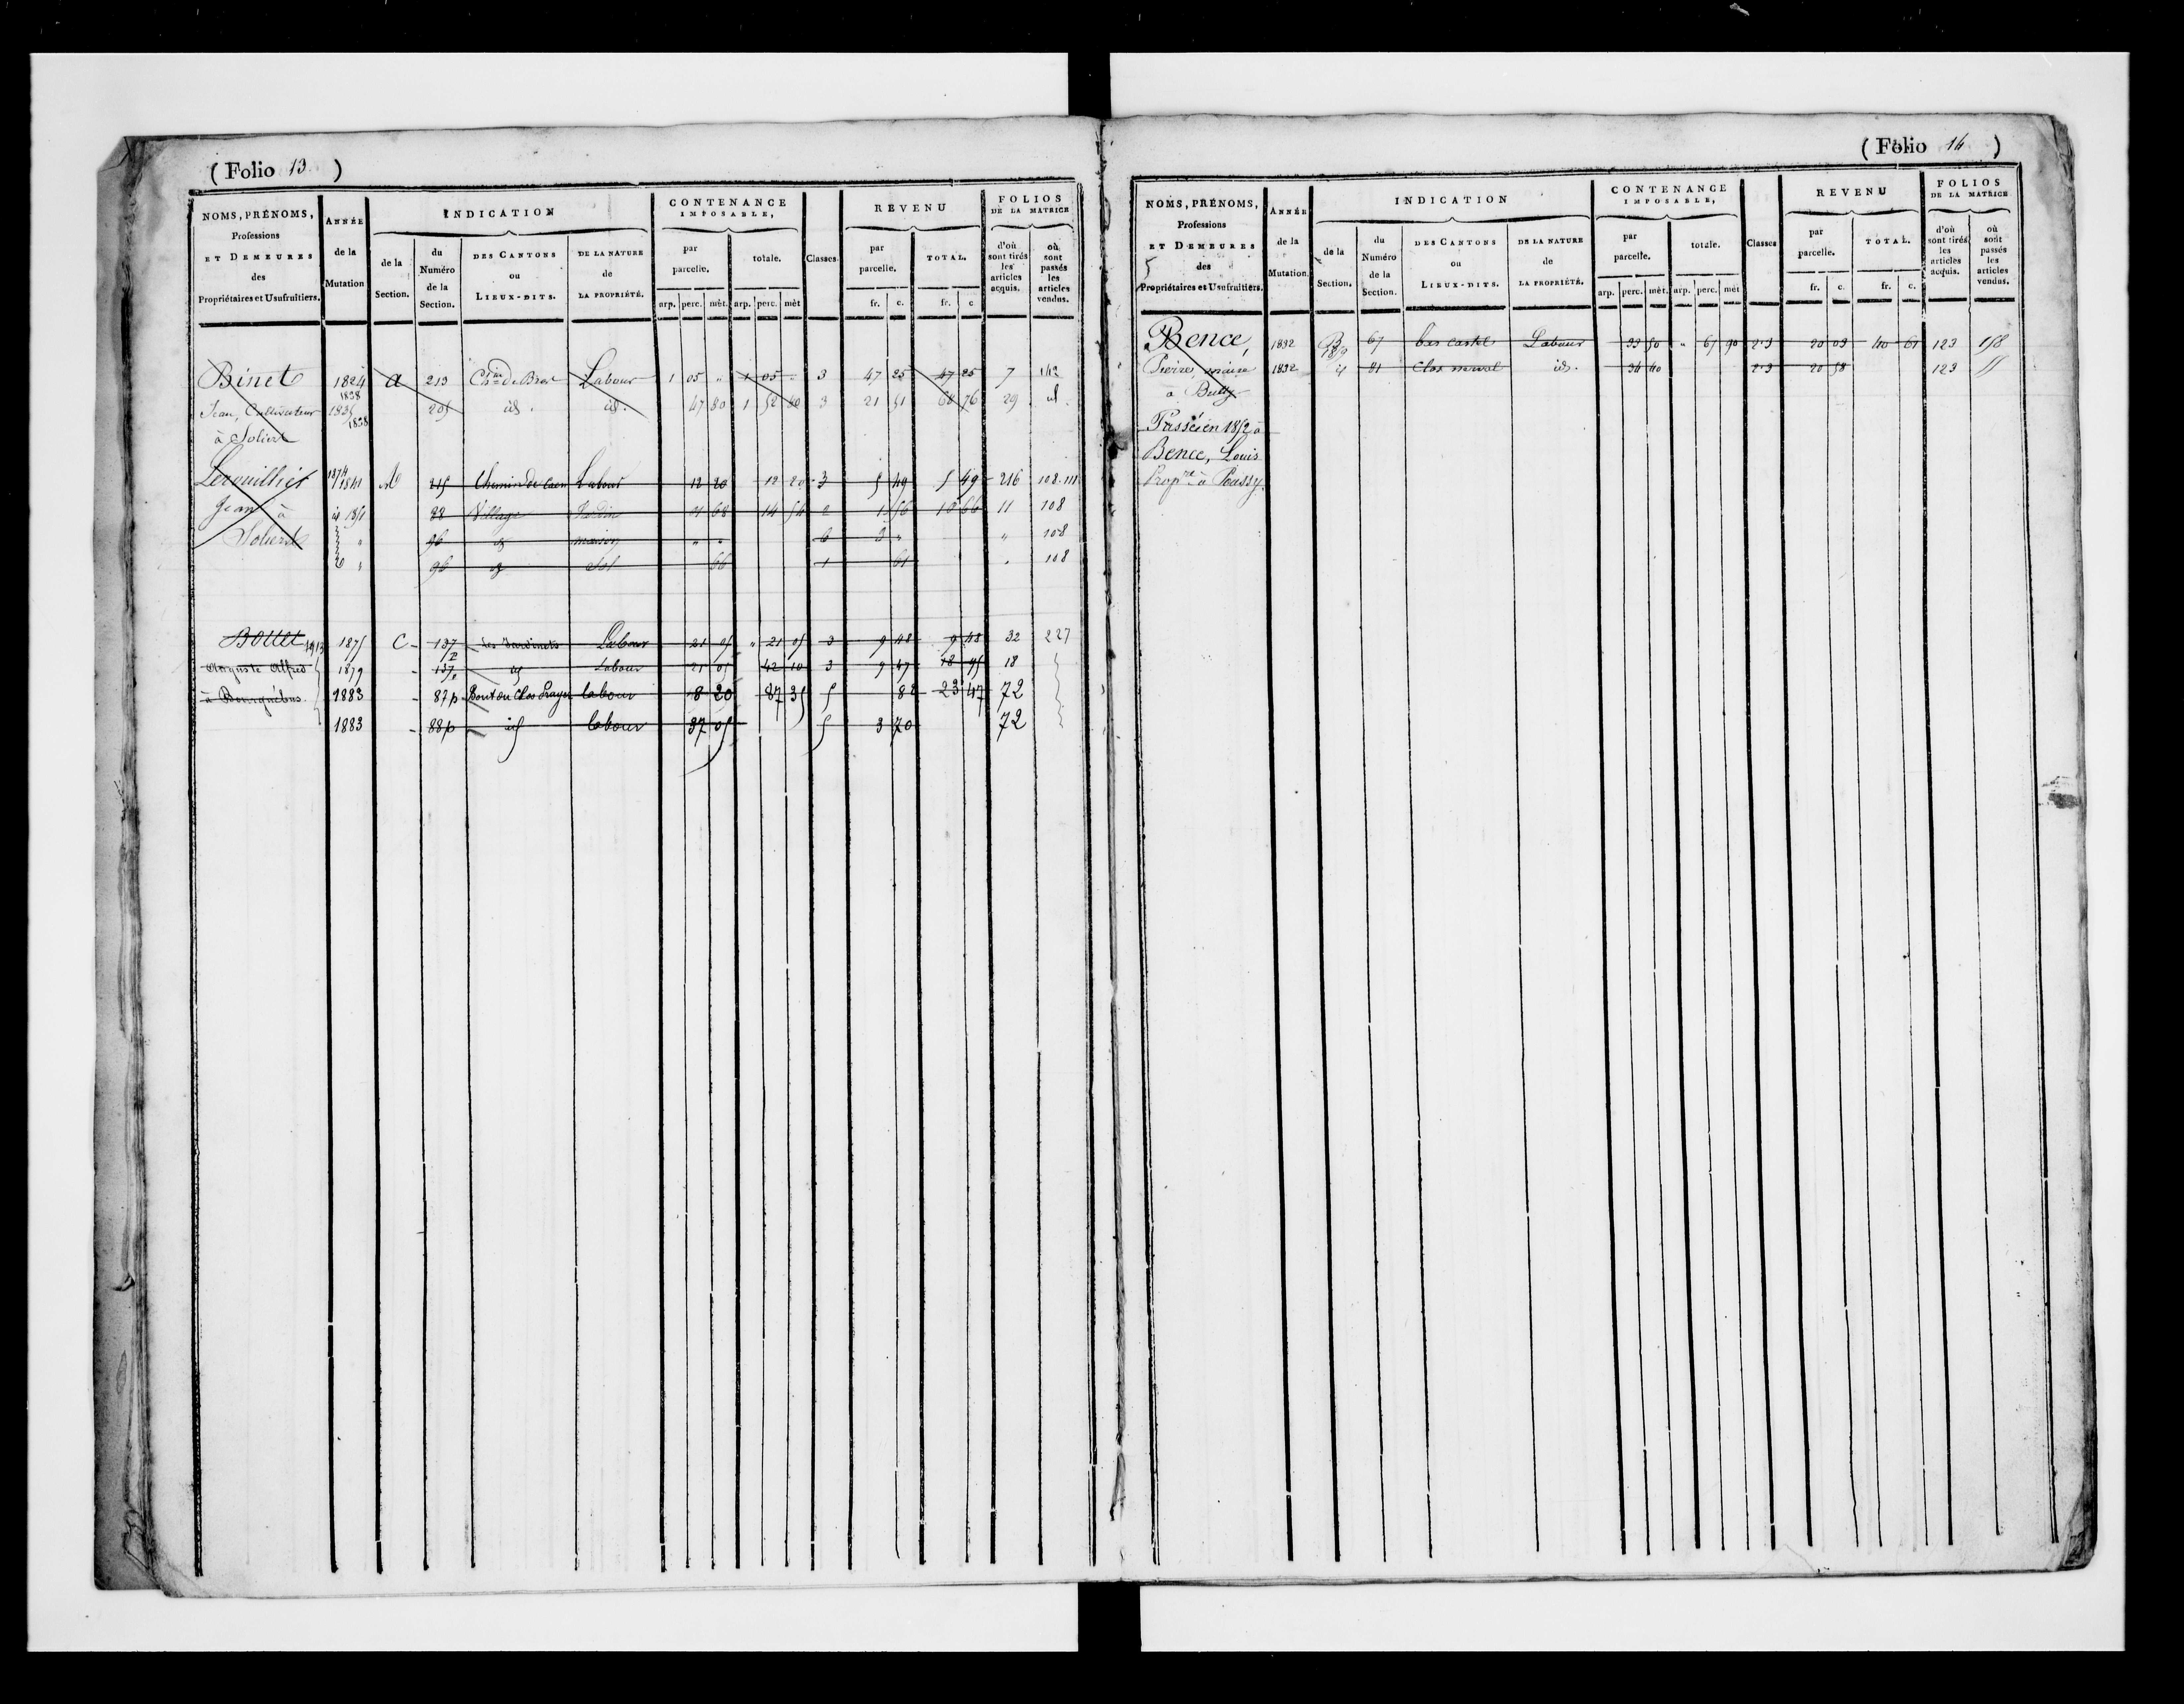 ( Folio 13. )
NOMS, PRÉNOMS, Professions ET DEMEURES des Propriétaires et Usufruitiers.
ANNÉE de la Mutation
INDICATION
de la Section.
du Numéro de la Section.
DES CANTONS ou LIEUX-DITS.
DE LA NATURE de LA PROPRIÉTÉ.
CONTENANCE IMPOSABLE,
par parcelle.
totale.
arp. perc. mèt. arp. perc. mèt
Classes.
REVENU
par parcelle.
TOTAL.
fr. c. fr. c
FOLIOS DE LA MATRICE
d'où sont tirés les articles acquis.
où sont passés les articles vendus.
Binet 1824 a 213 Labour 1 05 " 1 05 " 3 47 25 47 25 7 142
1838
Jean, Cultivateur 1835 205 id. id. 47 80 1 52 80 3 21 51 68 76 29 id.
1838
à Soliers
1874
1841 215 Chemin de Caen Labour 12 20 12 20 3 5 49 5 49 216 108.111
Jean à id 88 Village Jardin 2 1 56 11 108
Soliers " 96 id maison " " 6 " 108
" 96 id Sol 66 1 61 108
1913
Bottet 1875 C 137 Labour 21 05 " 21 05 3 9 48 9 48 32 227
Auguste Alfred 1879 137 id Labour 21 05 42 10 3 9 47 18 95 18
à Bourguébus. 1883 87p Bout du Clos labour 8 20 87 35 5 82 23 47 72
1883 88p id labour 37 05 5 3 70 72
( Folio 14 )
NOMS, PRÉNOMS, Professions ET DEMEURES des Propriétaires et Usufruitiers.
ANNÉE de la Mutation.
INDICATION
de la Section.
du Numéro de la Section.
DES CANTONS ou LIEUX-DITS.
DE LA NATURE de LA PROPRIÉTÉ.
CONTENANCE IMPOSABLE,
par parcelle.
totale.
arp. perc. mèt. arp. perc. mèt
Classes
REVENU
par parcelle.
TOTAL.
fr. c. fr. c.
FOLIOS DE LA MATRICE
d'où sont tirés les articles acquis.
où sont passés les articles vendus.
Bence, 1832 B 67 bas castel Labour 33 50 " 67 90 2.3 20 03 40 61 123 158
Pierre, 1832 id 81 Clos id. 34 40 2.3 20 58 123 "
à Bully
Passé en 1852 à
Bence, Louis
Propre à Poussy.